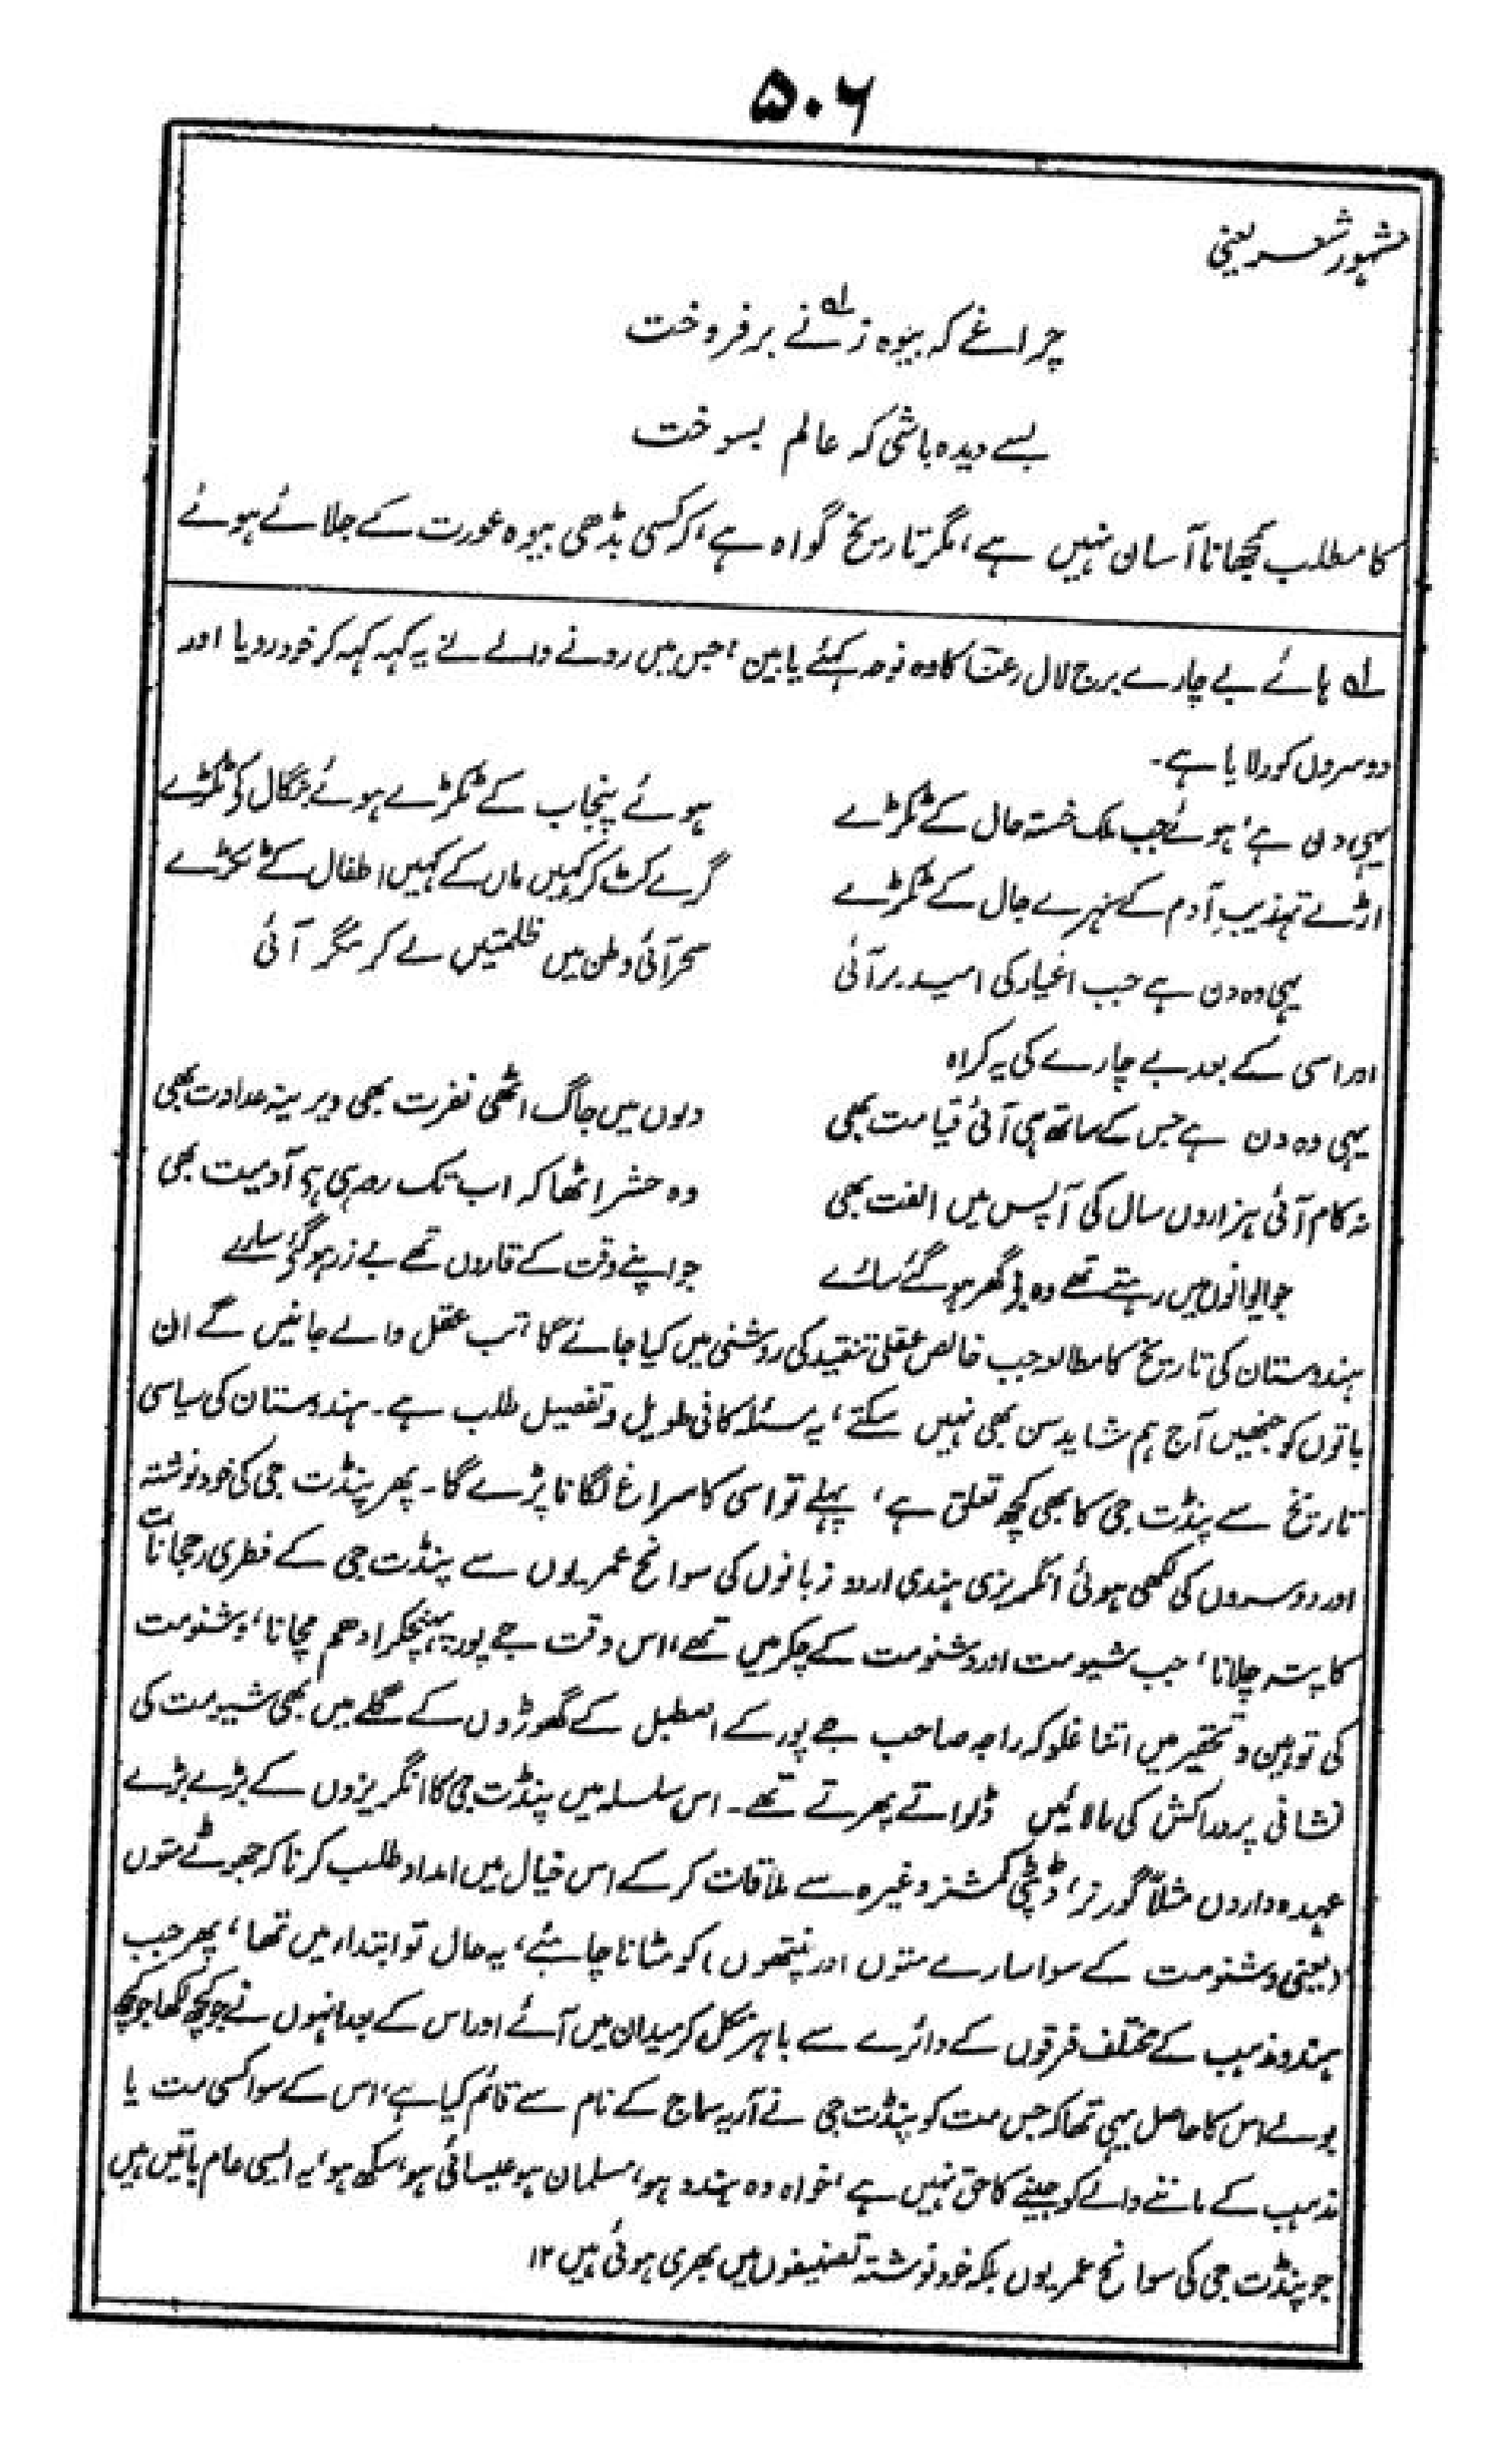 ۵۰۶
مشہور شعر یعنی
چراغے کہ بیوہ زنے لہ بر فروخت
بسے دیدہ باشی کہ عالم بسوخت
کا مطلب سمجھانا آسان نہیں ہے، مگر تاریخ گواہ ہے، کہ کسی بڈھی بیوہ عورت کے جلائے ہوئے
لہ ہائے بے چارے برج لال رعنا کا وہ نوحہ کہئے یا بین، جس میں رونے والے نے یہ کہہ کہہ کر خود رویا اور
دوسروں کو رلایا ہے۔
یہی دن ہے، ہوئے جب ملک خستہ حال کے ٹکڑے ہوئے پنجاب کے ٹکڑے ہوئے بنگال کے ٹکڑے
اڑے تہذیبِ آدم کے سنہرے جال کے ٹکڑے گرے کٹ کر کہیں ماں کے کہیں اطفال کے ٹکڑے
یہی وہ دن ہے جب اغیار کی امید بر آئی سحر آئی وطن میں ظلمتیں لے کر مگر آئی
اور اسی کے بعد بے چارے کی یہ کراہ
یہی وہ دن ہے جس کے ساتھ ہی آئی قیامت بھی دلوں میں جاگ اٹھی نفرت بھی دیرینہ عداوت بھی
نہ کام آئی ہزاروں سال کی آپس میں الفت بھی وہ حشر اٹھا کہ اب تک رو رہی ہے آدمیت بھی
جو ایوانوں میں رہتے تھے وہ بے گھر ہو گئے سارے جو اپنے وقت کے قاروں تھے بے زر ہو گئے سارے
ہندوستان کی تاریخ کا مطالعہ جب خالص عقلی تنقید کی روشنی میں کیا جائے گا، تب عقل والے جانیں گے ان
باتوں کو جنھیں آج ہم شاید سن بھی نہیں سکتے، یہ مسئلہ کافی طویل و تفصیل طلب ہے۔ ہندوستان کی سیاسی
تاریخ سے پنڈت جی کا بھی کچھ تعلق ہے، پہلے تو اسی کا سراغ لگانا پڑے گا۔ پھر پنڈت جی کی خود نوشتہ
اور دوسروں کی لکھی ہوئی انگریزی ہندی اردو زبانوں کی سوانح عمریوں سے پنڈت جی کے فطری رجحانات
کا پتہ چلانا، جب شیومت اور وشنومت کے چکر میں تھے، اس وقت جے پور پہنچکر ادھم مچانا، وشنومت
کی توہین و تحقیر میں اتنا غلو کہ راجہ صاحب جے پور کے اصطبل کے گھوڑوں کے گلے میں بھی شیومت کی
نشانی پر رودراکش کی مالائیں ڈلواتے پھرتے تھے۔ اس سلسلہ میں پنڈت جی کا انگریزوں کے بڑے بڑے
عہدہ داروں مثلاً گورنر، ڈپٹی کمشنر وغیرہ سے ملاقات کر کے اس خیال میں امداد طلب کرنا کہ جھوٹے متوں
(یعنی وشنومت کے سوا سارے متوں اور پنتھوں) کو مٹانا چاہئے، یہ حال تو ابتداء میں تھا، پھر جب
ہندو مذہب کے مختلف فرقوں کے دائرے سے باہر نکل کر میدان میں آئے اور اس کے بعد انہوں نے جو کچھ لکھا جو کچھ
بولے اس کا حاصل یہی تھا کہ جس مت کو پنڈت جی نے آریہ سماج کے نام سے قائم کیا ہے، اس کے سوا کسی مت یا
مذہب کے ماننے والے کو جینے کا حق نہیں ہے، خواہ وہ ہندو ہو، مسلمان ہو عیسائی ہو، سکھ ہو، یہ ایسی عام باتیں ہیں
جو پنڈت جی کی سوانح عمریوں بلکہ خود نوشتہ تصنیفوں میں بھری ہوئی ہیں ۱۲